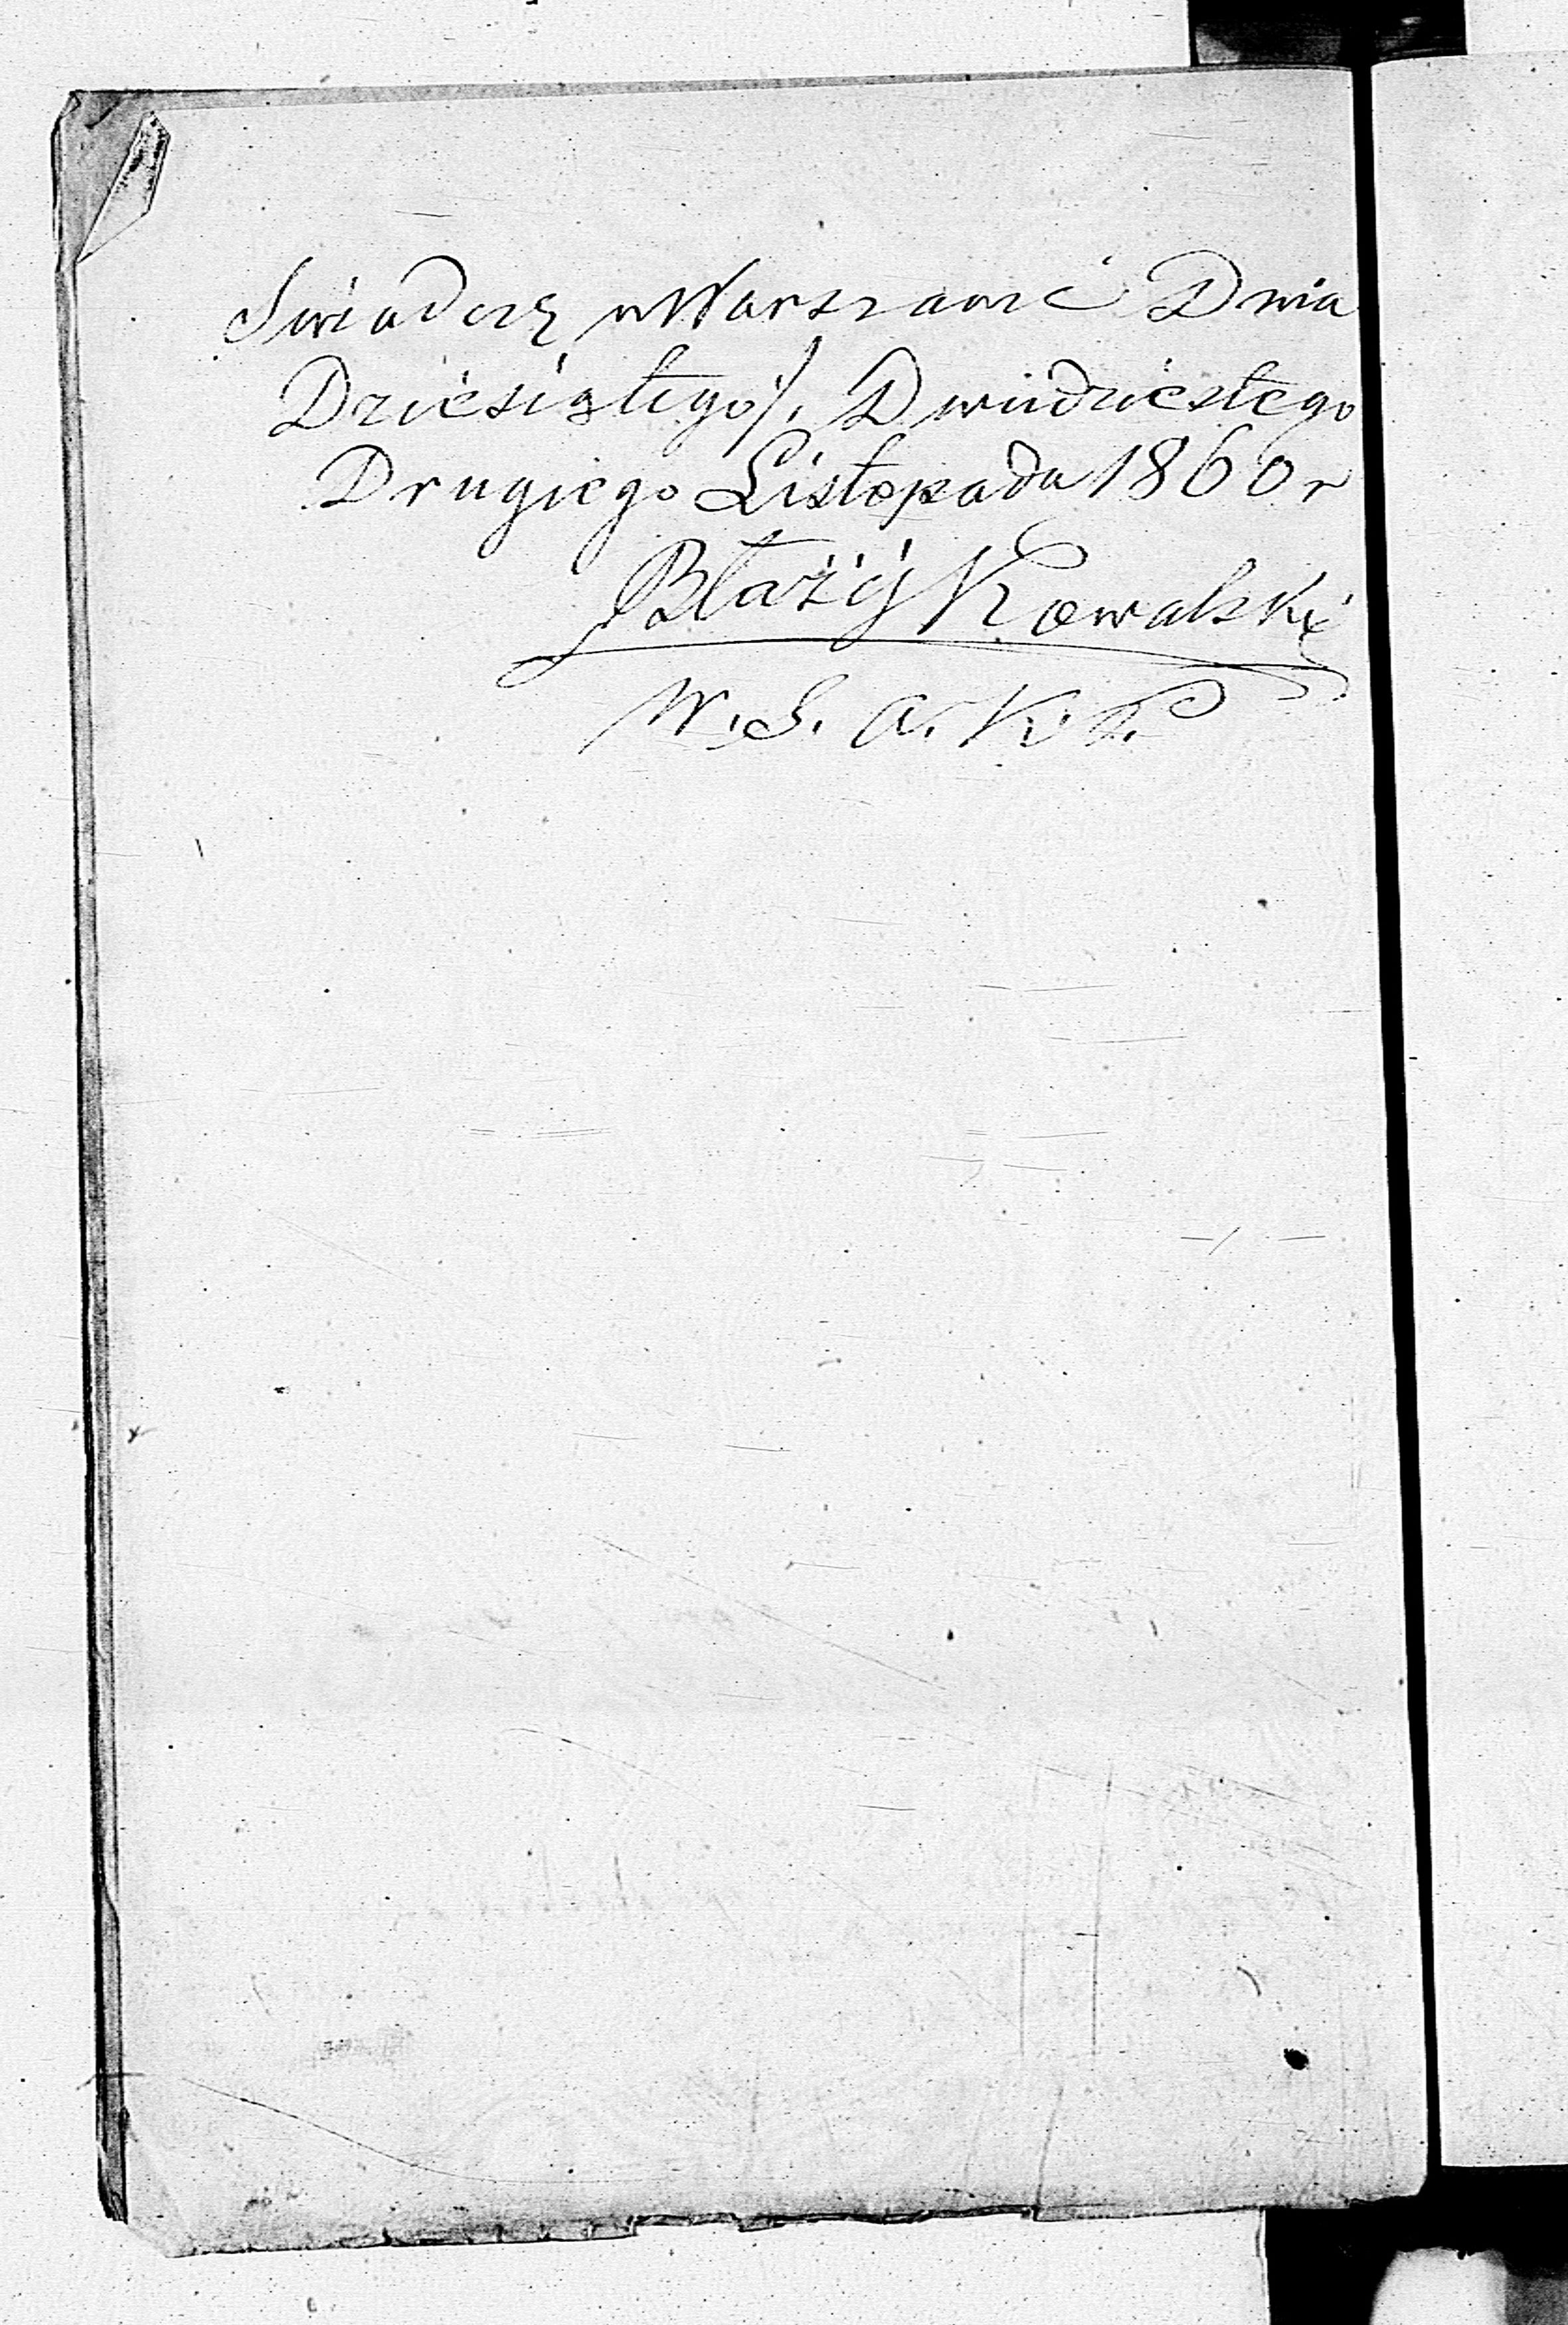 Swiadczę w Warszawie Dnia
Dziesiątego /. Dwudziestego
Drugiego Listopada 1860 r
Błażéj Kowalski
W. S. A. K. P.